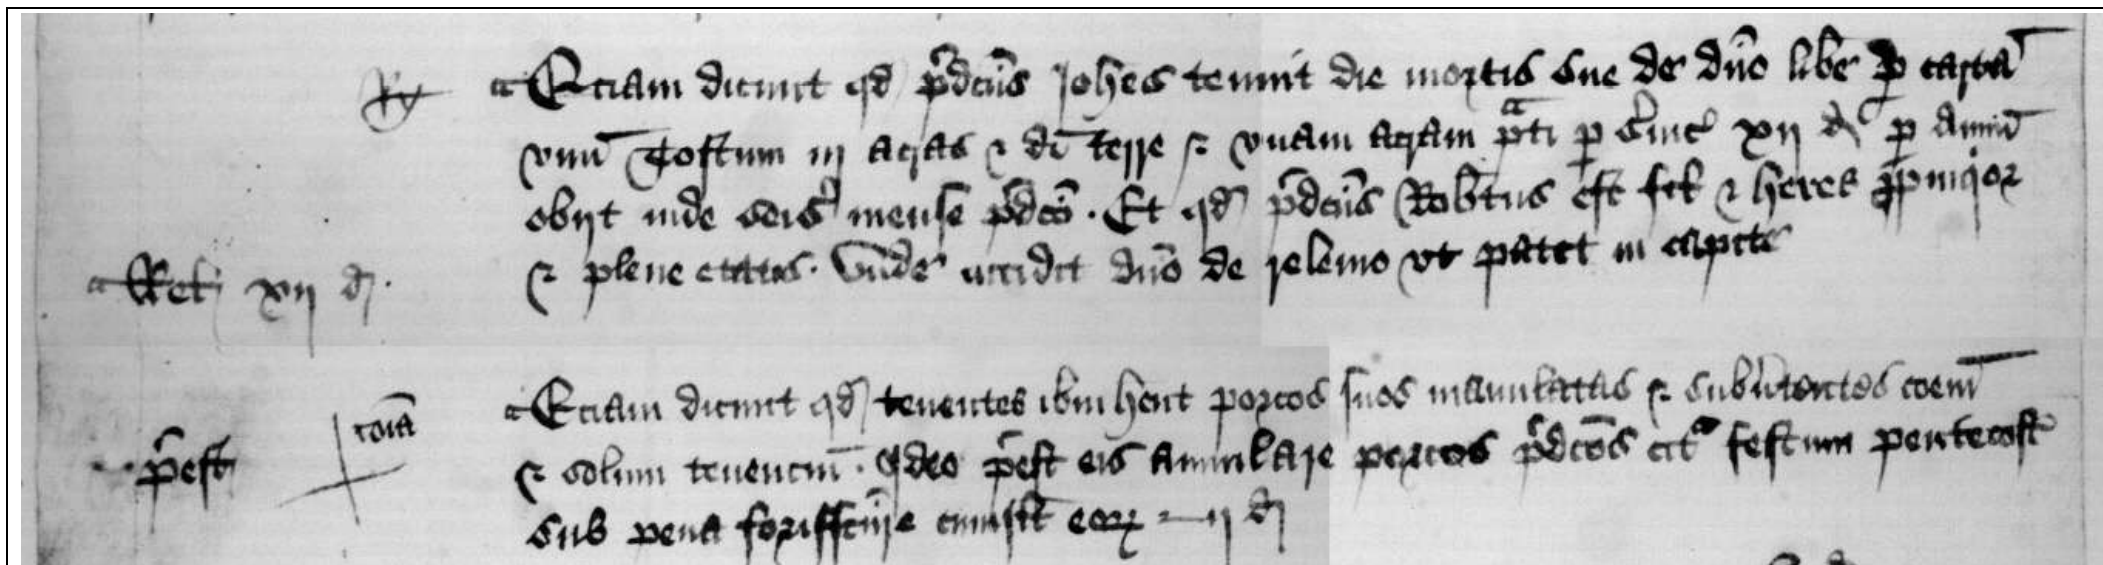 Eciam dicunt qd p̄dcūs Joh̄es tenuit die mortis sue de dn̄o lib̄e ꝑ cartā
vnū Toftum iij acras ⁊ di t̄re ⁊ vnam acram p̄ti ꝑ s̄uic̄ xij d̄ ꝑ Annū
obijt inde seis̄ mense p̄dcō. Et qd p̄dcūs Rob̄tus est fil̄ ⁊ heres ꝓpinqior
Rel̄ xij d̄. ⁊ plene etatis. Vnde accidit dn̄o de releuio vt patet in capite
Eciam dicunt qd tenentes ib̄m h̄ent porcos suos inanulatas ⁊ subūtentes coem̄
p̄est ⁊ solum tenenciū. Ideo p̄est eis Annulare porcos p̄dcōs cit̄ festum pentecost̄
sub pena forisfcūre cuiuslt̄ eoꝝ ij d̄